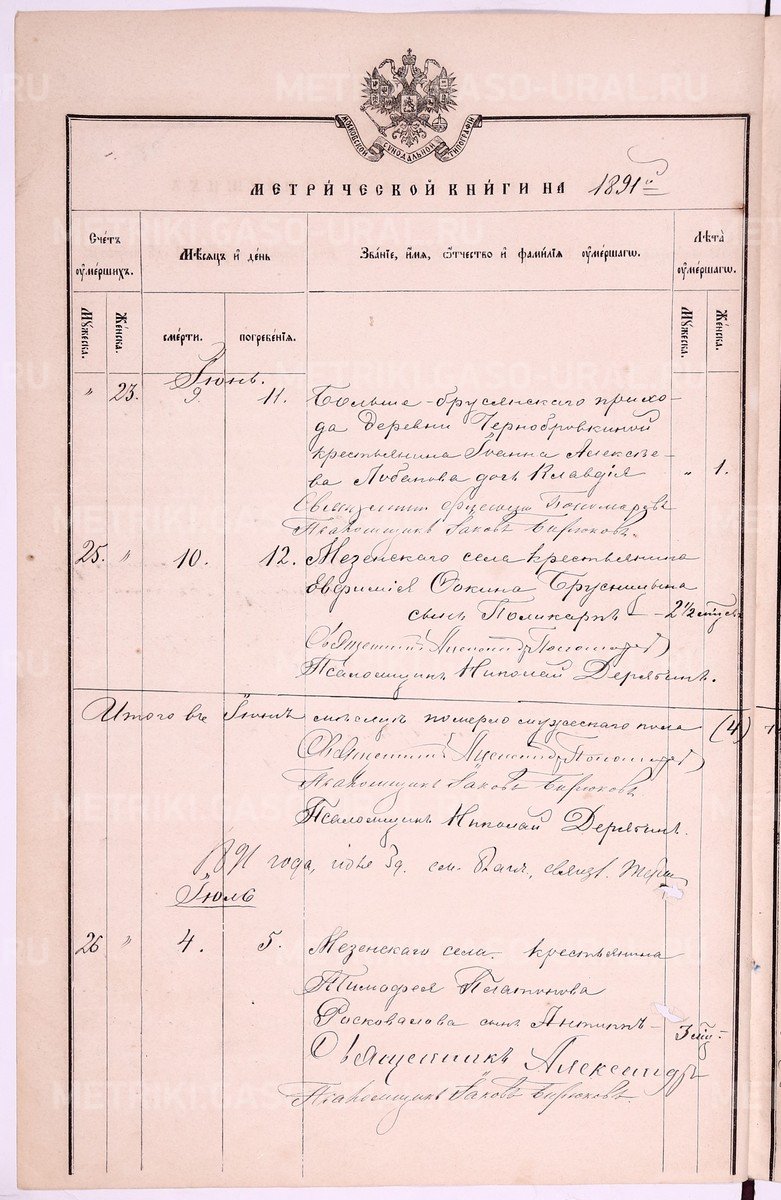 МОСКОВСКОЙ СѴНОДАЛЬНОЙ ТИПОГРАФІИ
МЕТРИ́ЧЕСКОЙ КНИ́ГИ НА 1891й
Сче́тъ оу҆ме́ршихъ.
Мѣ́сяцъ и҆ де́нь
Зва́нїе, и҆́мя, ѻ҆́тчество и҆ фами́лїя оу҆ме́ршагѡ.
Лѣ́та оу҆ме́ршагѡ.
Мꙋ́жеска.
Же́нска.
сме́рти.
погребе́нїя.
Мꙋ́жеска.
Же́нска.
Іюнь.
" 23. 9. 11. Больше-брусянскаго прихо-
да деревни Чернобровкиной
крестьянина Іоанна Алексѣе-
ва Лобанова дочь Клавдія " 1.
Священникъ Пономаревъ
Псаломщикъ Іаковъ Бирюковъ.
25. " 10. 12. Мезенскаго села крестьянина
Евфимія Фокина Брусницына
сынъ Поликарпъ - - 2½ мѣсяц.
Священникъ Александръ Пономаревъ
Псаломщикъ Николай Дерябинъ.
Итого въ Іюнѣ мѣсяцѣ померло мужескаго пола (4)
Священникъ Александръ Пономаревъ
Псаломщикъ Іаковъ Бирюковъ
Псаломщикъ Николай Дерябинъ.
1891 года, іюля 3д. см. Благ. священ.
Іюль
26 " 4. 5. Мезенскаго села крестьянина
Тимофея Платонова
Росковалова сынъ Антипъ - 3 мѣс.
Священникъ Александръ
Псаломщикъ Іаковъ Бирюковъ.
METRIKI.GASO-URAL.RU